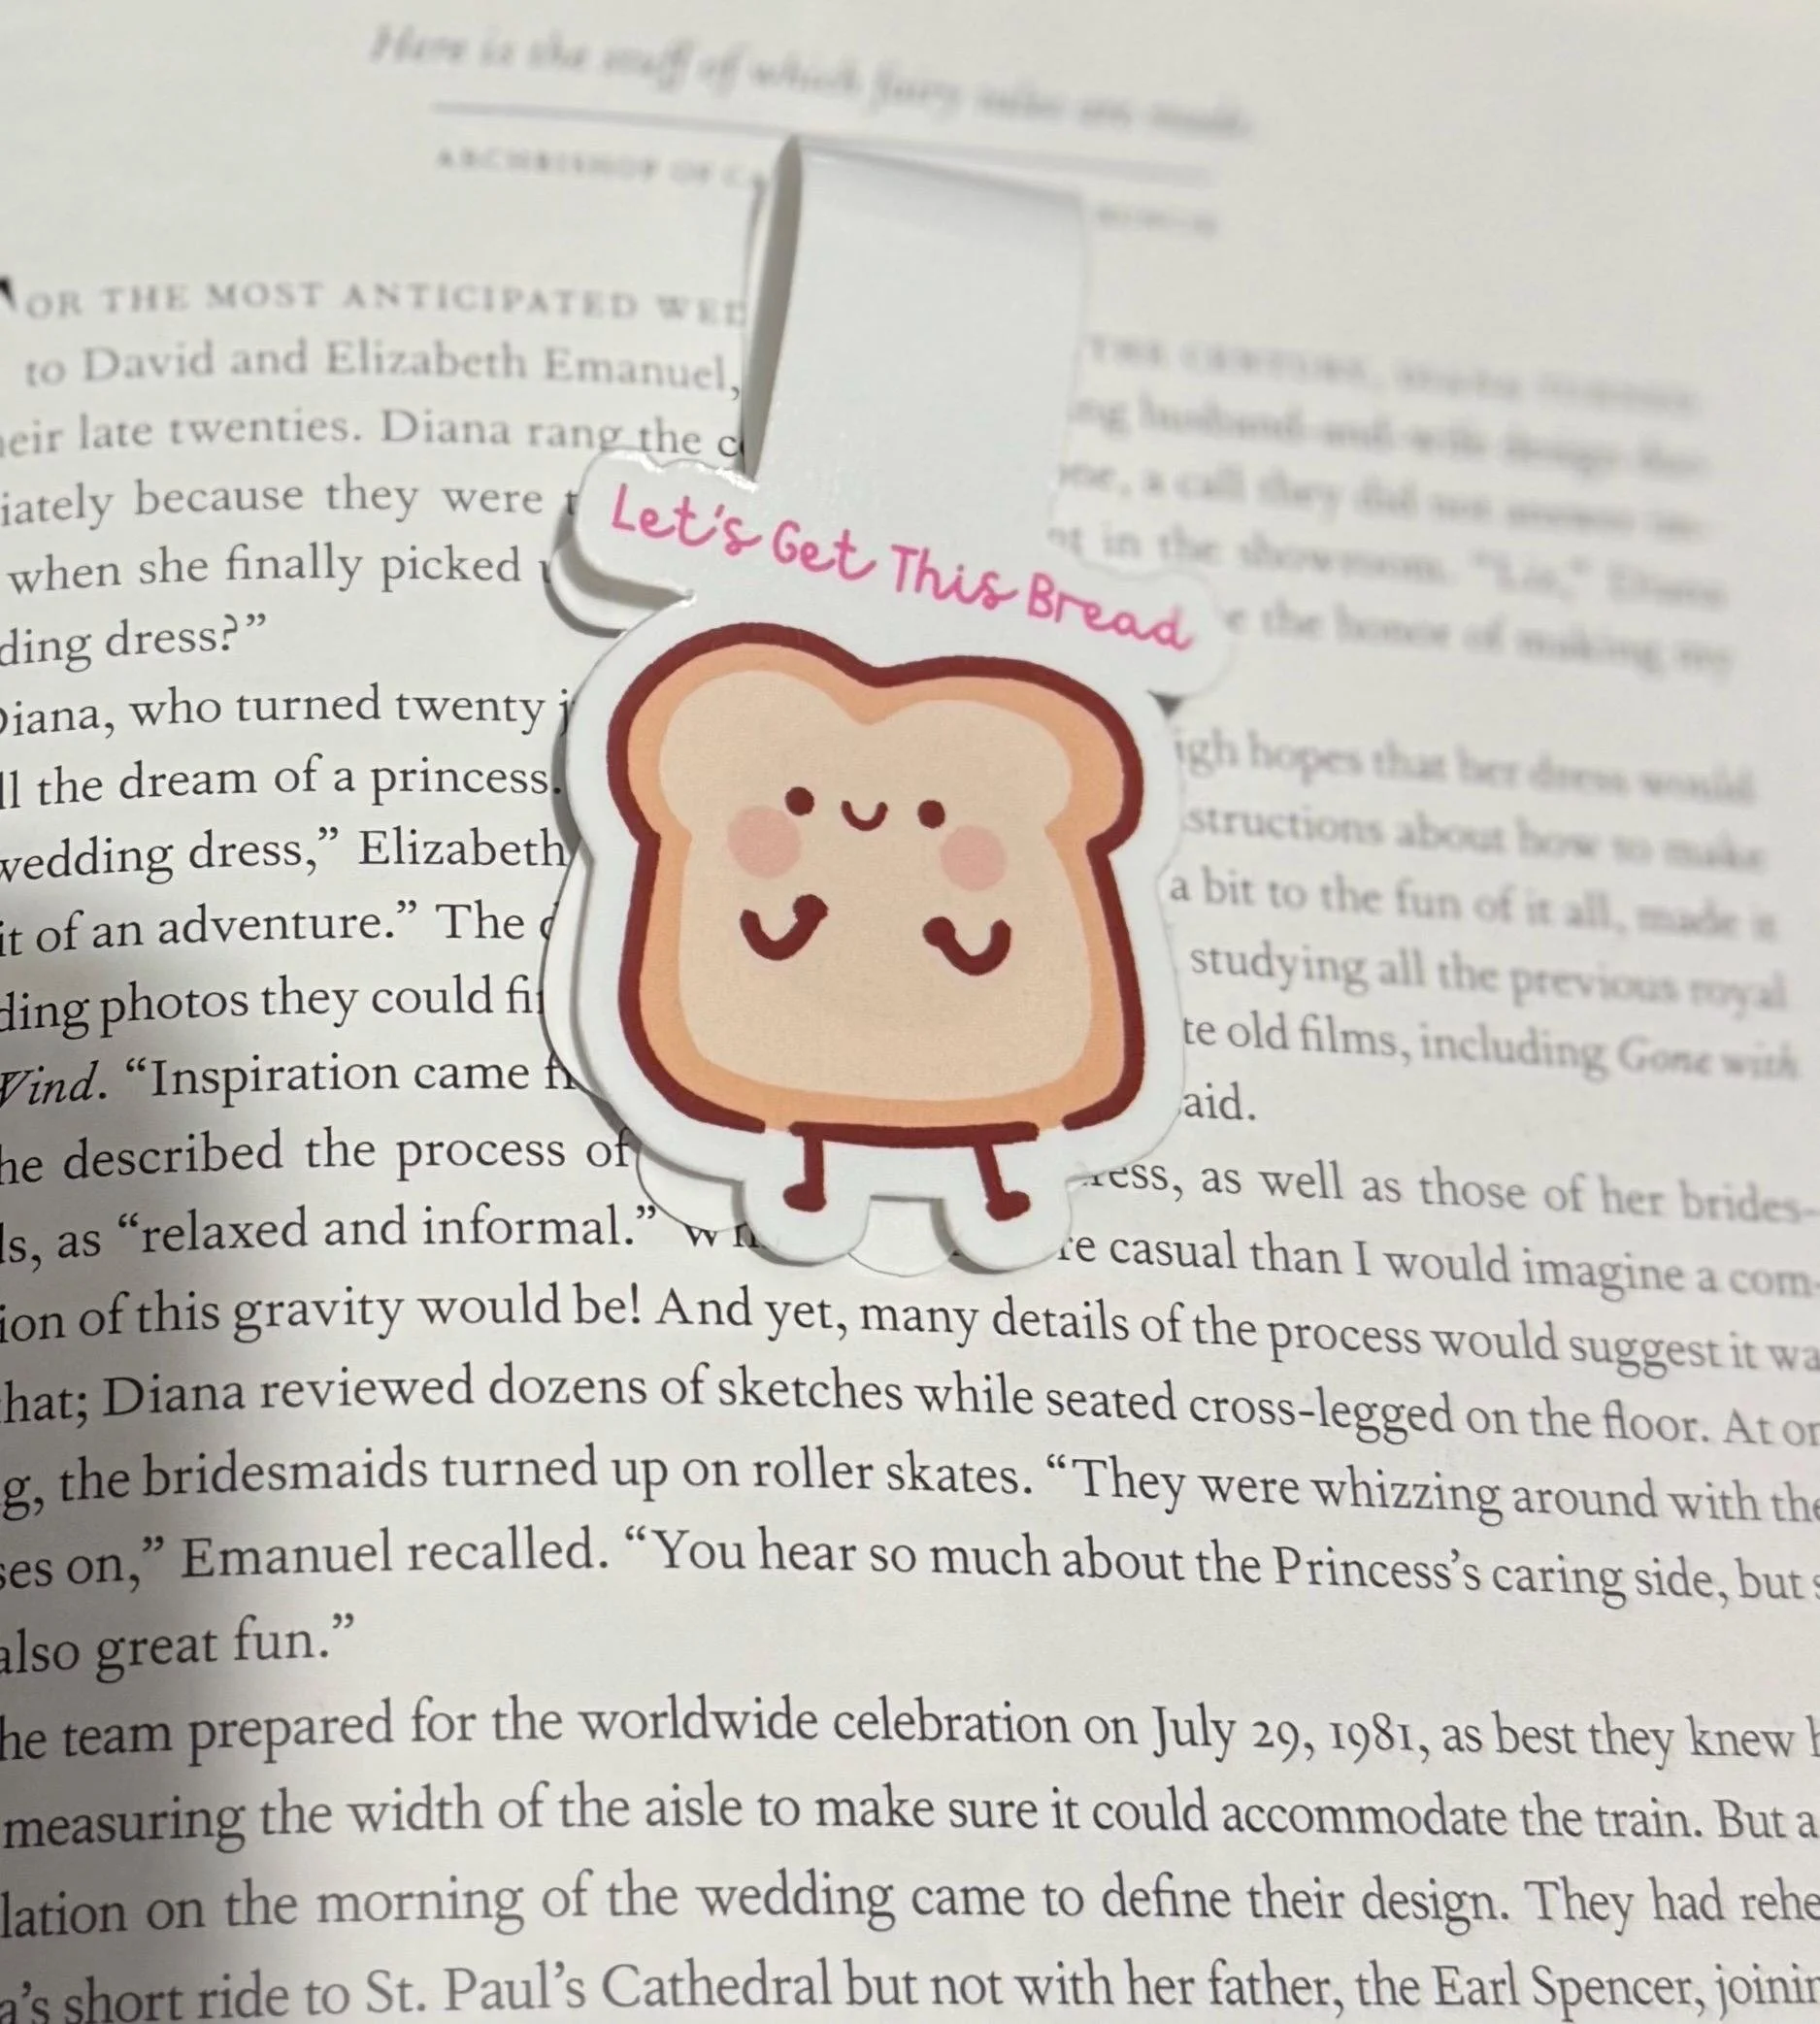 Here is the stuff of which fairy tales are made.
ARCHBISHOP OF
OR THE MOST ANTICIPATED WED THE CENTURE,
to David and Elizabeth Emanuel, ng husband-and-wife design
heir late twenties. Diana rang the a call they did not answer
iately because they were in the showroom. "Diana
when she finally picked the honor of making my
ding dress?”
Diana, who turned twenty igh hopes that her dress would
ll the dream of a princess. structions about how to make
wedding dress,” Elizabeth a bit to the fun of it all, made it
it of an adventure.” The studying all the previous royal
ding photos they could te old films, including Gone with
Wind. “Inspiration came aid.
he described the process of ress, as well as those of her brides-
ls, as “relaxed and informal.” re casual than I would imagine a com-
ion of this gravity would be! And yet, many details of the process would suggest it wa
hat; Diana reviewed dozens of sketches while seated cross-legged on the floor. At on
g, the bridesmaids turned up on roller skates. “They were whizzing around with the
ses on,” Emanuel recalled. “You hear so much about the Princess’s caring side, but s
also great fun.”
he team prepared for the worldwide celebration on July 29, 1981, as best they knew h
measuring the width of the aisle to make sure it could accommodate the train. But a
lation on the morning of the wedding came to define their design. They had rehe
a’s short ride to St. Paul’s Cathedral but not with her father, the Earl Spencer, joinin
Let's Get This Bread